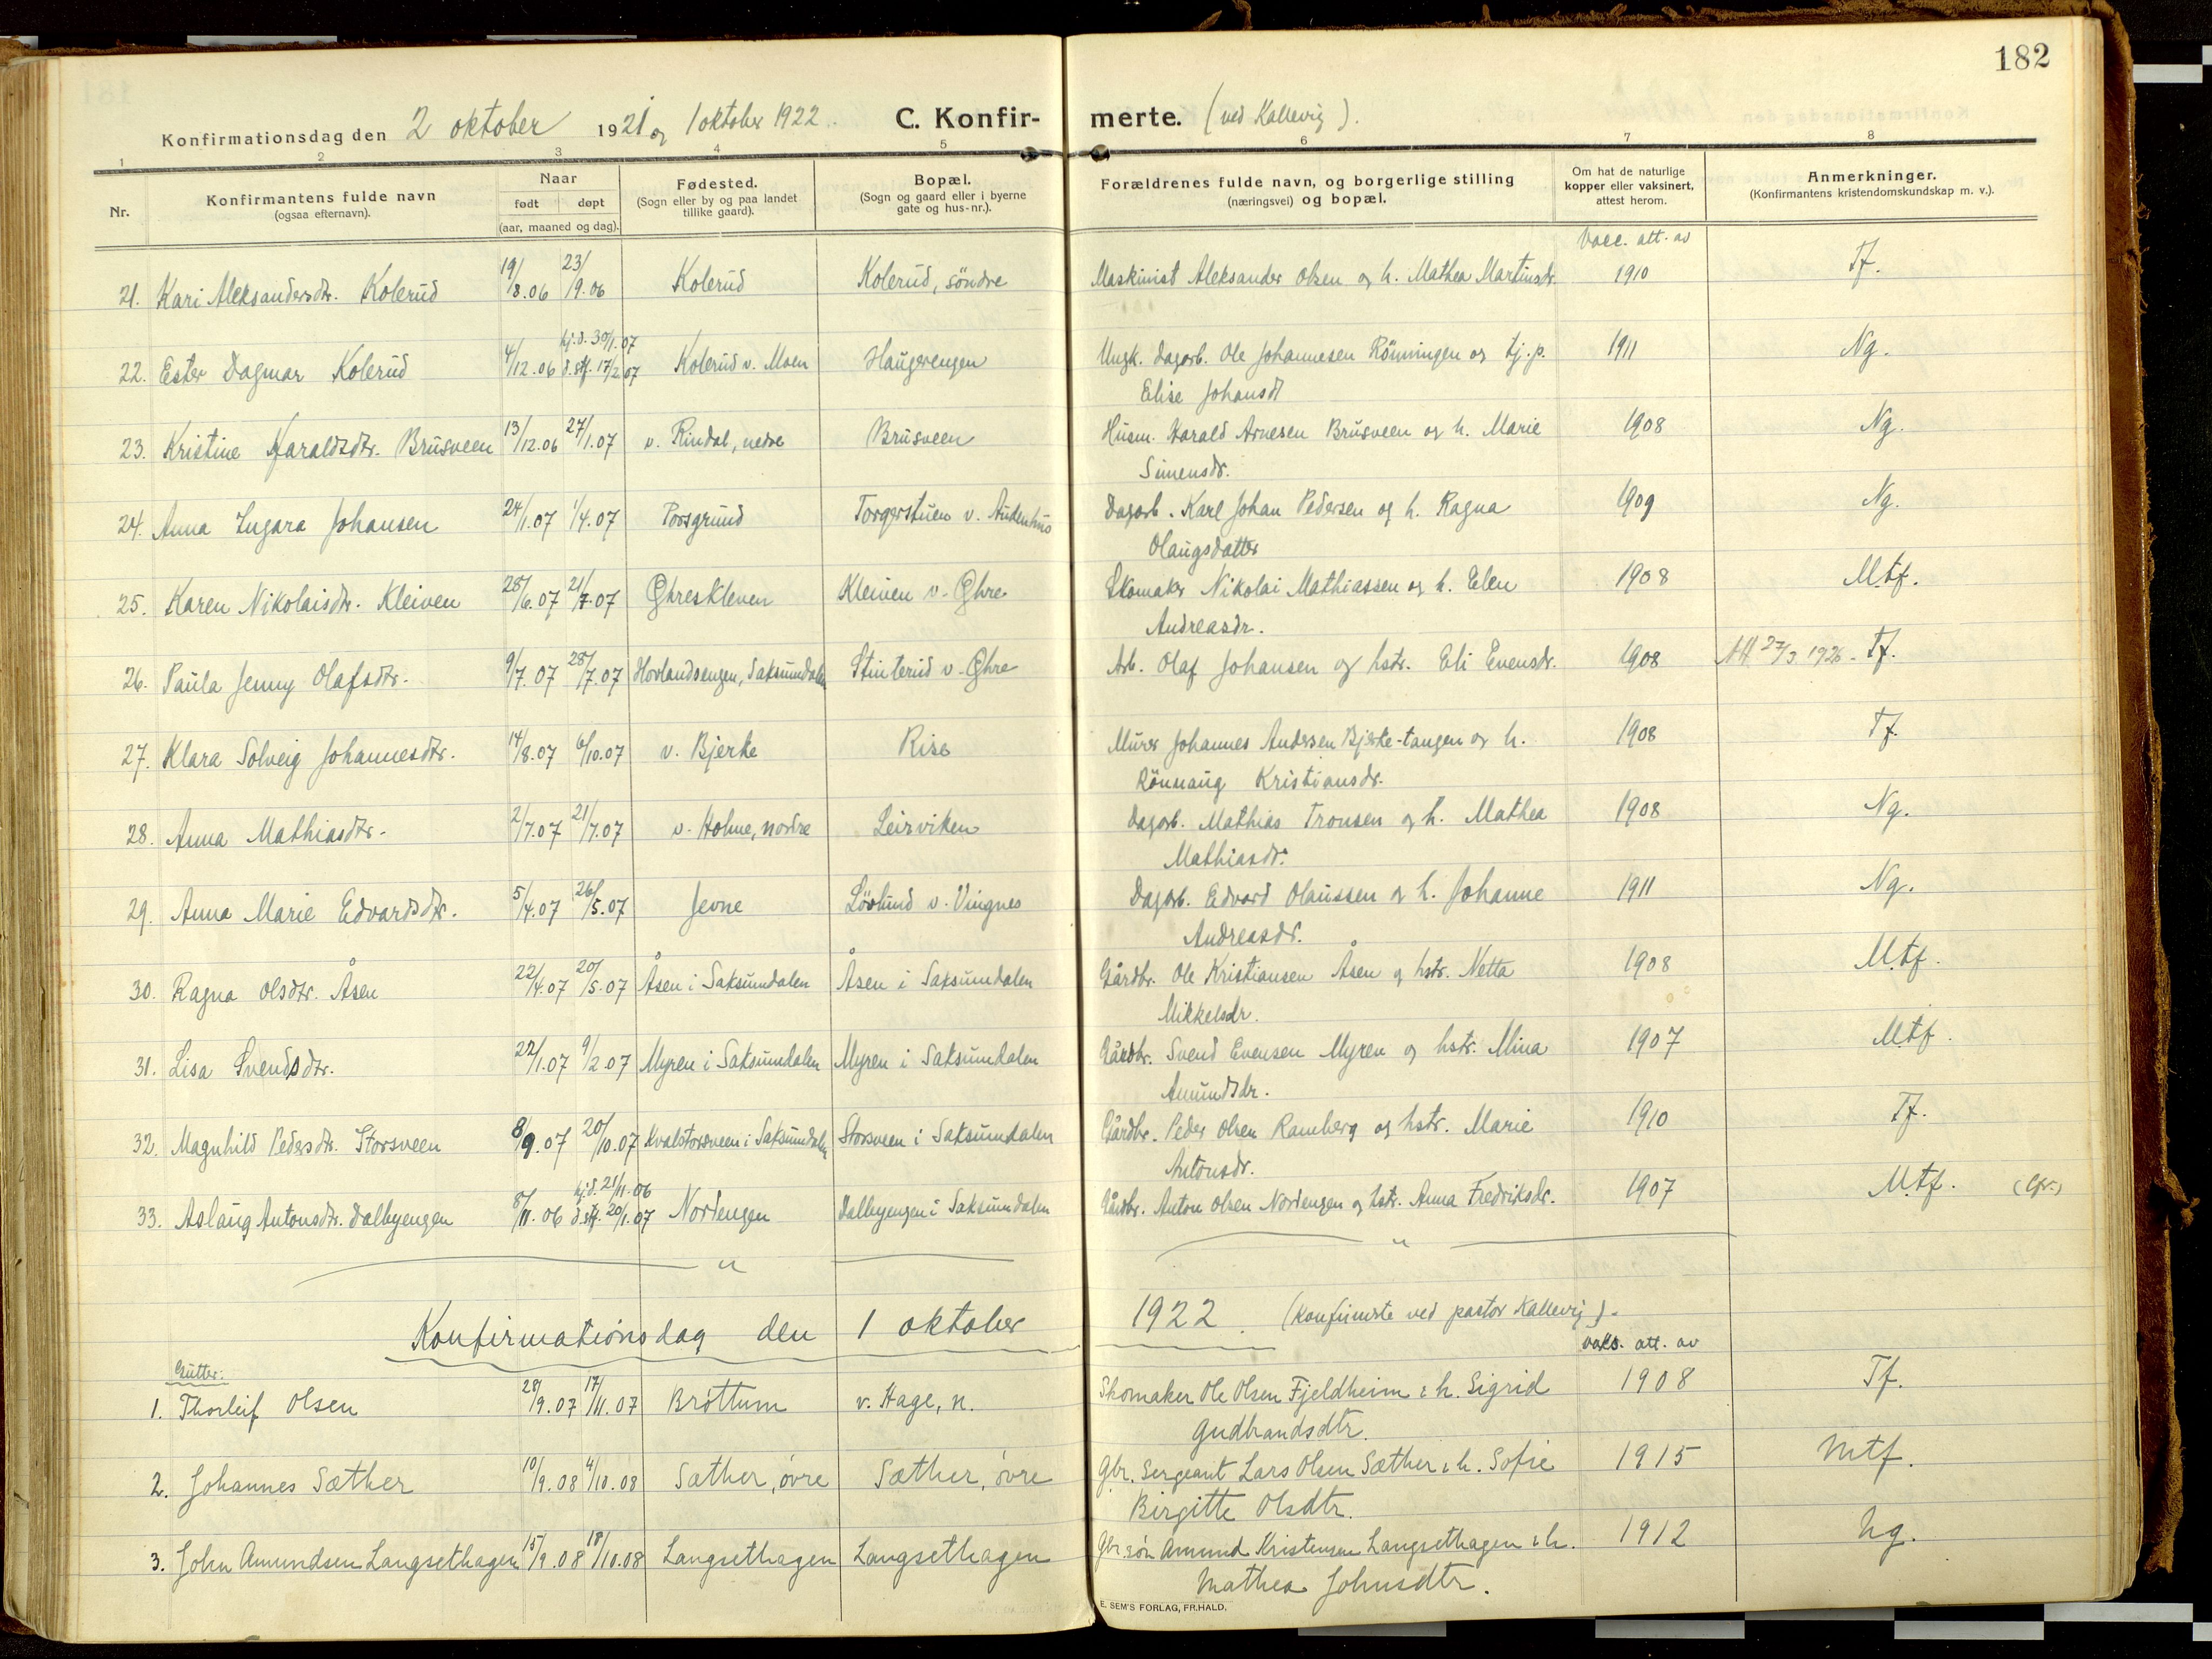 182
Konfirmationsdag den 2 oktober 1921 og 1 oktober 1922. C. Konfirmerte. (ved Kallevig).
1 2 3 4 5 6 7 8
Nr.
Konfirmantens fulde navn
(ogsaa efternavn).
Naar
født døpt
(aar, maaned og dag).
Fødested.
(Sogn eller by og paa landet
tillike gaard).
Bopæl.
(Sogn og gaard eller i byerne
gate og hus-nr.).
Forældrenes fulde navn, og borgerlige stilling
(næringsvei) og bopæl.
Om hat de naturlige
kopper eller vaksinert,
attest herom.
Anmerkninger.
(Konfirmantens kristendomskundskap m. v.).
Vacc. att. av
21. Kari Aleksandersdtr. Kolerud 19/8.06 23/9.06 Kolerud Kolerud, söndre Maskinist Aleksander Olsen og h. Mathea Martinsdr. 1910 Tf.
22. Ester Dagmar Kolerud 4/12.06 hj.d. 30/1.07 d.stf. 17/2 07 Kolerud v. Moen Haugerengen Ungk. dagarb. Ole Johannesen Rönningen og tj.p. 1911 Ng.
Elise Johansdt
23. Kristine Haraldsdtr. Brusveen 13/12.06 27/1.07 v. Rindal, nedre Brusveen Husm. Harald Arnesen Brusveen og h. Marie 1908 Ng.
Simensdr.
24. Anna Ingara Johansen 24/1.07 1/4.07 Porsgrund Torgerstuen v. Dagarb. Karl Johan Pedersen og h. Ragna 1909 Ng.
Olaugsdatter
25. Karen Nikolaisdtr. Kleiven 28/6.07 21/7.07 Øhreskleven Kleiven v. Øhre Skomaker Nikolai Mathiassen og h. Elen 1908 Mtf.
Andreasdr.
26. Paula Jenny Olafsdtr. 9/7.07 28/7.07 Hovlandsengen, Saksumdalen Stinterud v. Øhre Arb. Olaf Johansen og hstr. Eli Evensdr. 1908 Att 27/3 1926 - Tf.
27. Klara Solveig Johannesdtr. 14/8.07 6/10.07 v. Bjerke Rise Murer Johannes Andersen Bjerke-tangen og h. 1908 Tf.
Rönnaug Kristiansdr.
28. Anna Mathiasdtr. 2/7.07 21/7.07 v. Holme, nordre Leirviken Dagarb. Mathias Tronsen og h. Mathea 1908 Ng.
Mathiasdr.
29. Anna Marie Edvardsdtr. 5/4.07 26/5.07 Jevne Lövlund v. Vingnes Dagarb. Edvard Olaussen og h. Johanne 1911 Ng.
Andreasdr.
30. Ragna Olsdtr. Åsen 22/4.07 20/5.07 Åsen i Saksumdalen Åsen i Saksumdalen Gårdbr. Ole Kristiansen Åsen og hstr. Netta 1908 Mtf.
Mikkelsdr.
31. Lisa Svendsdtr. 22/1.07 9/2.07 Myren i Saksumdalen Myren i Saksumdalen Gårdbr. Svend Evensen Myren og hstr. Mina 1907 Mtf.
Amundsdr.
32. Magnhild Pedersdtr. Storsveen 8/9.07 20/10.07 Kvalstorsveen i Saksumdalen Storsveen i Saksumdalen Gårdbr. Peder Olsen Ramberg og hstr. Marie 1910 Tf.
Antonsdr.
33. Aslaug Antonsdtr. Dalbyengen 8/11.06 hj.d. 21/11.06 d.stf. 20/1.07 Nordengen Dalbyengen i Saksumdalen Gårdbr. Anton Olsen Nordengen og hstr. Anna Fredriksdr. 1907 Mtf.
Konfirmationsdag den 1 oktober 1922. (konfirmerte ved pastor Kallevig).
vaks. att. av
Gutter:
1. Thorleif Olsen 28/9.07 17/11.07 Bröttum v. Hage, n. Skomaker Ole Olsen Fjeldheim & h. Sigrid 1908 Tf.
Gudbrandsdtr.
2. Johannes Sæther 10/9.08 4/10.08 Sæther, övre Sæther, övre Gbr. Sergeant Lars Olsen Sæther & h. Sofie 1915 Mtf.
Birgitte Olsdtr.
3. John Amundsen Langsethagen 15/9.08 18/10.08 Langsethagen Langsethagen Gbr.sön Amund Kristensen Langsethagen & h. 1912 Ng.
Mathea Johnsdtr.
E. SEM'S FORLAG, FR.HALD.